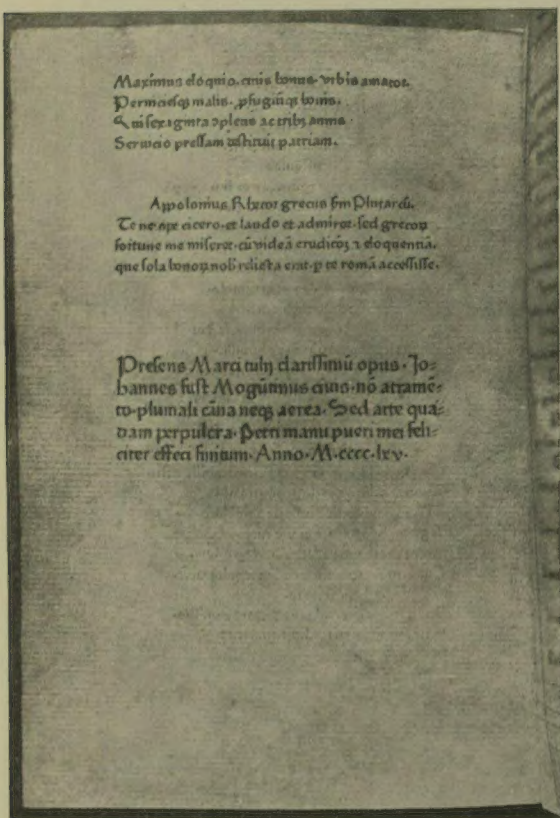 Maximus eloquio. ciuis bonus. vrbis amator.
Perniciesqꝫ malis. ꝓfugiūqꝫ bonis.
Qui sexaginta ↄplens ac tribꝫ annis
Seruicio pressam destituit patriam.
Appolonius Rhetor grecus scdm Plutarcū.
Te neꝑpe cicero. et laudo et admiror. sed grecoꝝ
fortune me miseret. cū videā eruditōꝫ ⁊ eloquentiā.
que sola bonoꝝ nobis relicta erat. ꝑ te romā accessisse.
Presens Marci tulij clarissimū opus. Jo⸗
hannes fust Mogūtinus ciuis. nō atramē⸗
to. plumali cāna neqꝫ aerea. Sed arte qua⸗
dam perpulcra. Petri manu pueri mei feli⸗
citer effeci finitum. Anno. M.cccc.lxv.